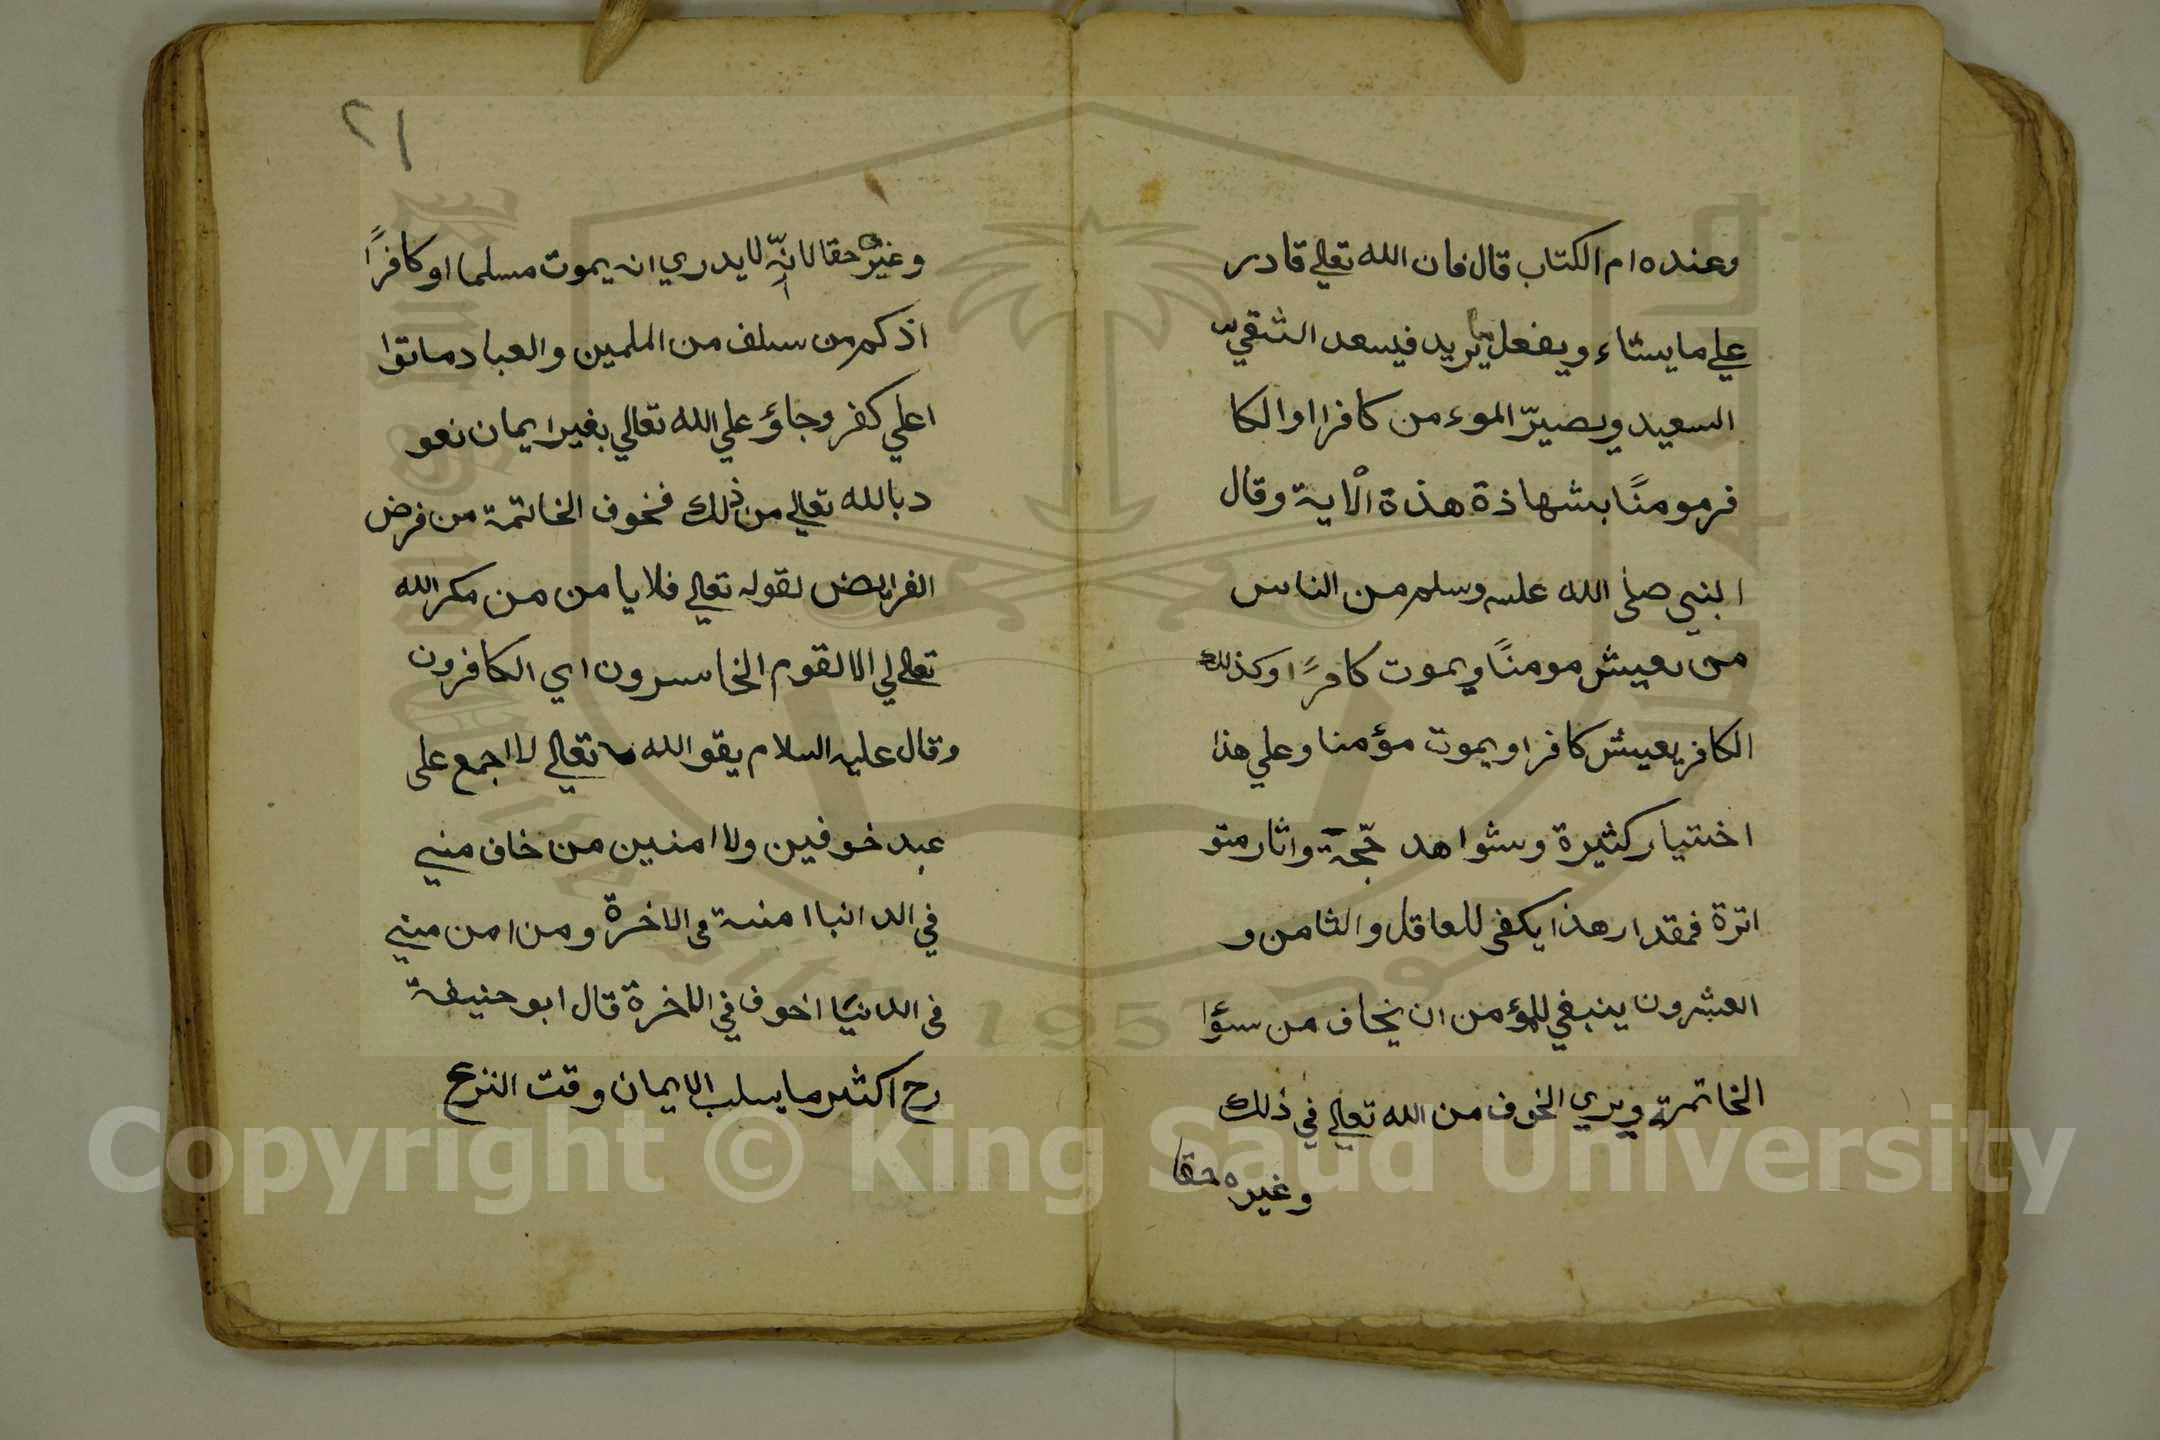 وعنده ام الكتاب قال فان الله تعالي قادر
علي ما يشاء ويفعل ما يريد فيسعد الشقيّ
السعيد ويصيرّ الموءمن كافرا او الكا
فر مومنًا بشهاذة هذة الْاية وقال
النبي صلى الله عليه وسلم من الناس
من يعيش مومنًا ويموت كافرًا وكذلك
الكافر يعيش كافرا ويموت مؤمنا وعلي هذا
اختيار كثيرة وشواهد حجّة واثار متو
اترة فمقدار هذا يكفى للعاقل والثامن و
العشرون ينبغي للمؤمن ان يخاف من سؤا
الخاتمة ويري الخوف من الله تعالي في ذلك
وغيره حقا
٢١
وغيره حقا لانّه لا يدري انه يموت مسلما او كافرًا
اذ كم من سلف من الملمين والعباد ماتوا
اعلي كفر وجاؤ علي الله تعالي بغير ايمان نعو
د بالله تعالي من ذلك فخوف الخاتمة من فرض
الفرايض لقوله تعالي فلا يامن من مكر الله
تعالي الا القوم الخاسرون اي الكافرون
وقال عليه السلام يقو الله تعالي لا اجمع على
عبد خوفين ولا امنين من خاف مني
في الدانيا امنته فى الاخرة ومن امن مني
فى الدنيا اخوف في الاخرة قال ابو حنيفة
رح اكثر ما يسلب الايمان وقت النزع
Copyright © King Saud University
King Saud University
1957